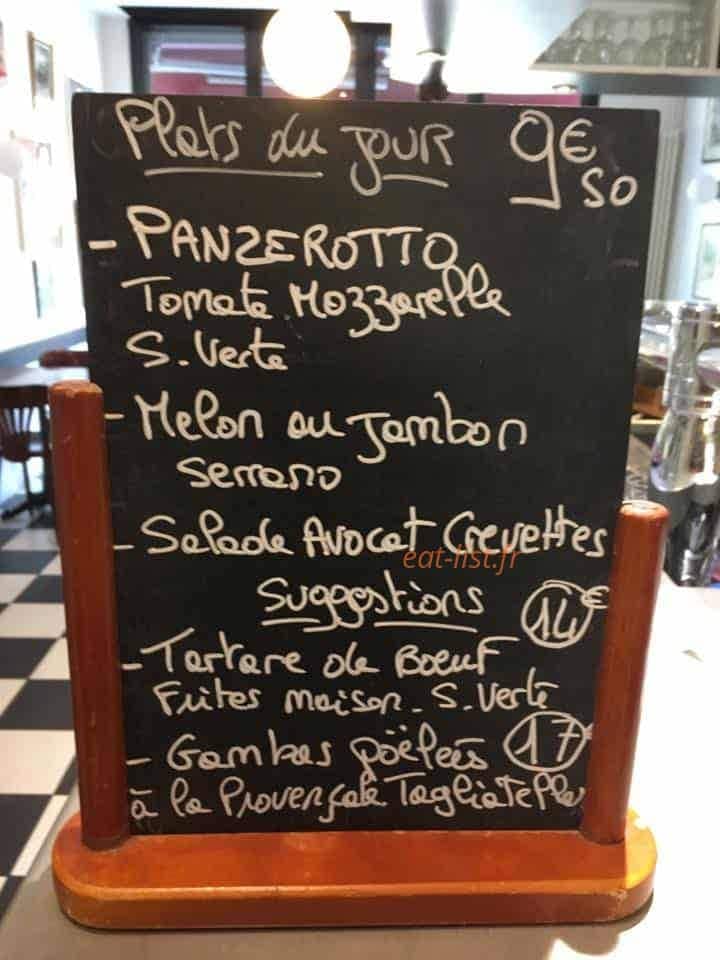 Plats du JOUR 9€50
- PANZEROTTO
Tomate Mozzarella
S. Verte
- Melon au Jambon
Serrano
- Salade Avocat Crevettes
eat-list.fr
Suggestions 14€
- Tartare de Boeuf
Frites maison. S. Verte
- Gambas poëlées 17€
à la Provençale Tagliatelles